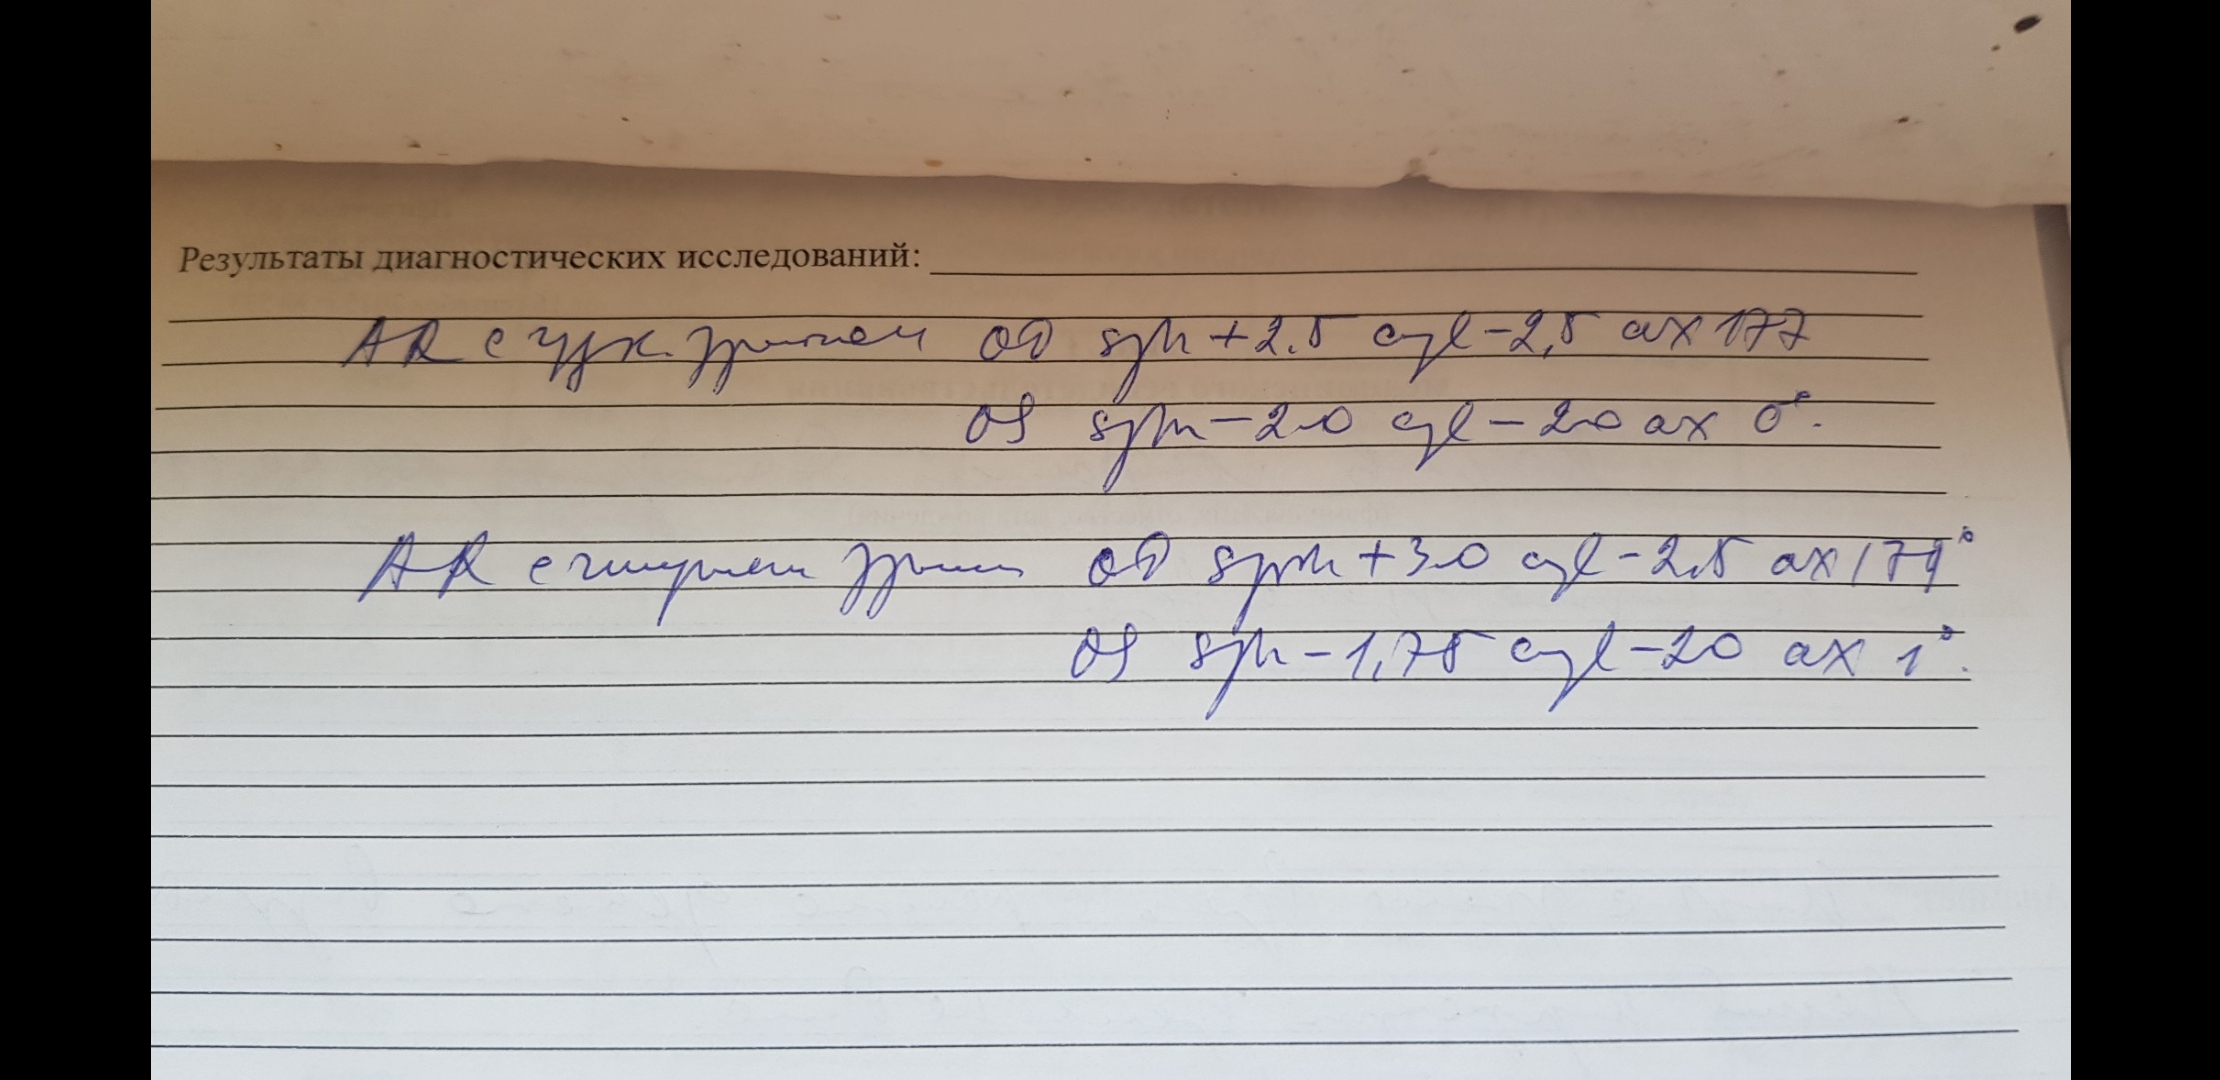 Результаты диагностических исследований:
AR с узк. зрачком OD sph +2.5 cyl -2,5 ax 177
OS sph -2.0 cyl -2.0 ax 0°.
AR с широким зрачком OD sph +3.0 cyl -2.5 ax 179°
OS sph -1,75 cyl -2.0 ax 1°.